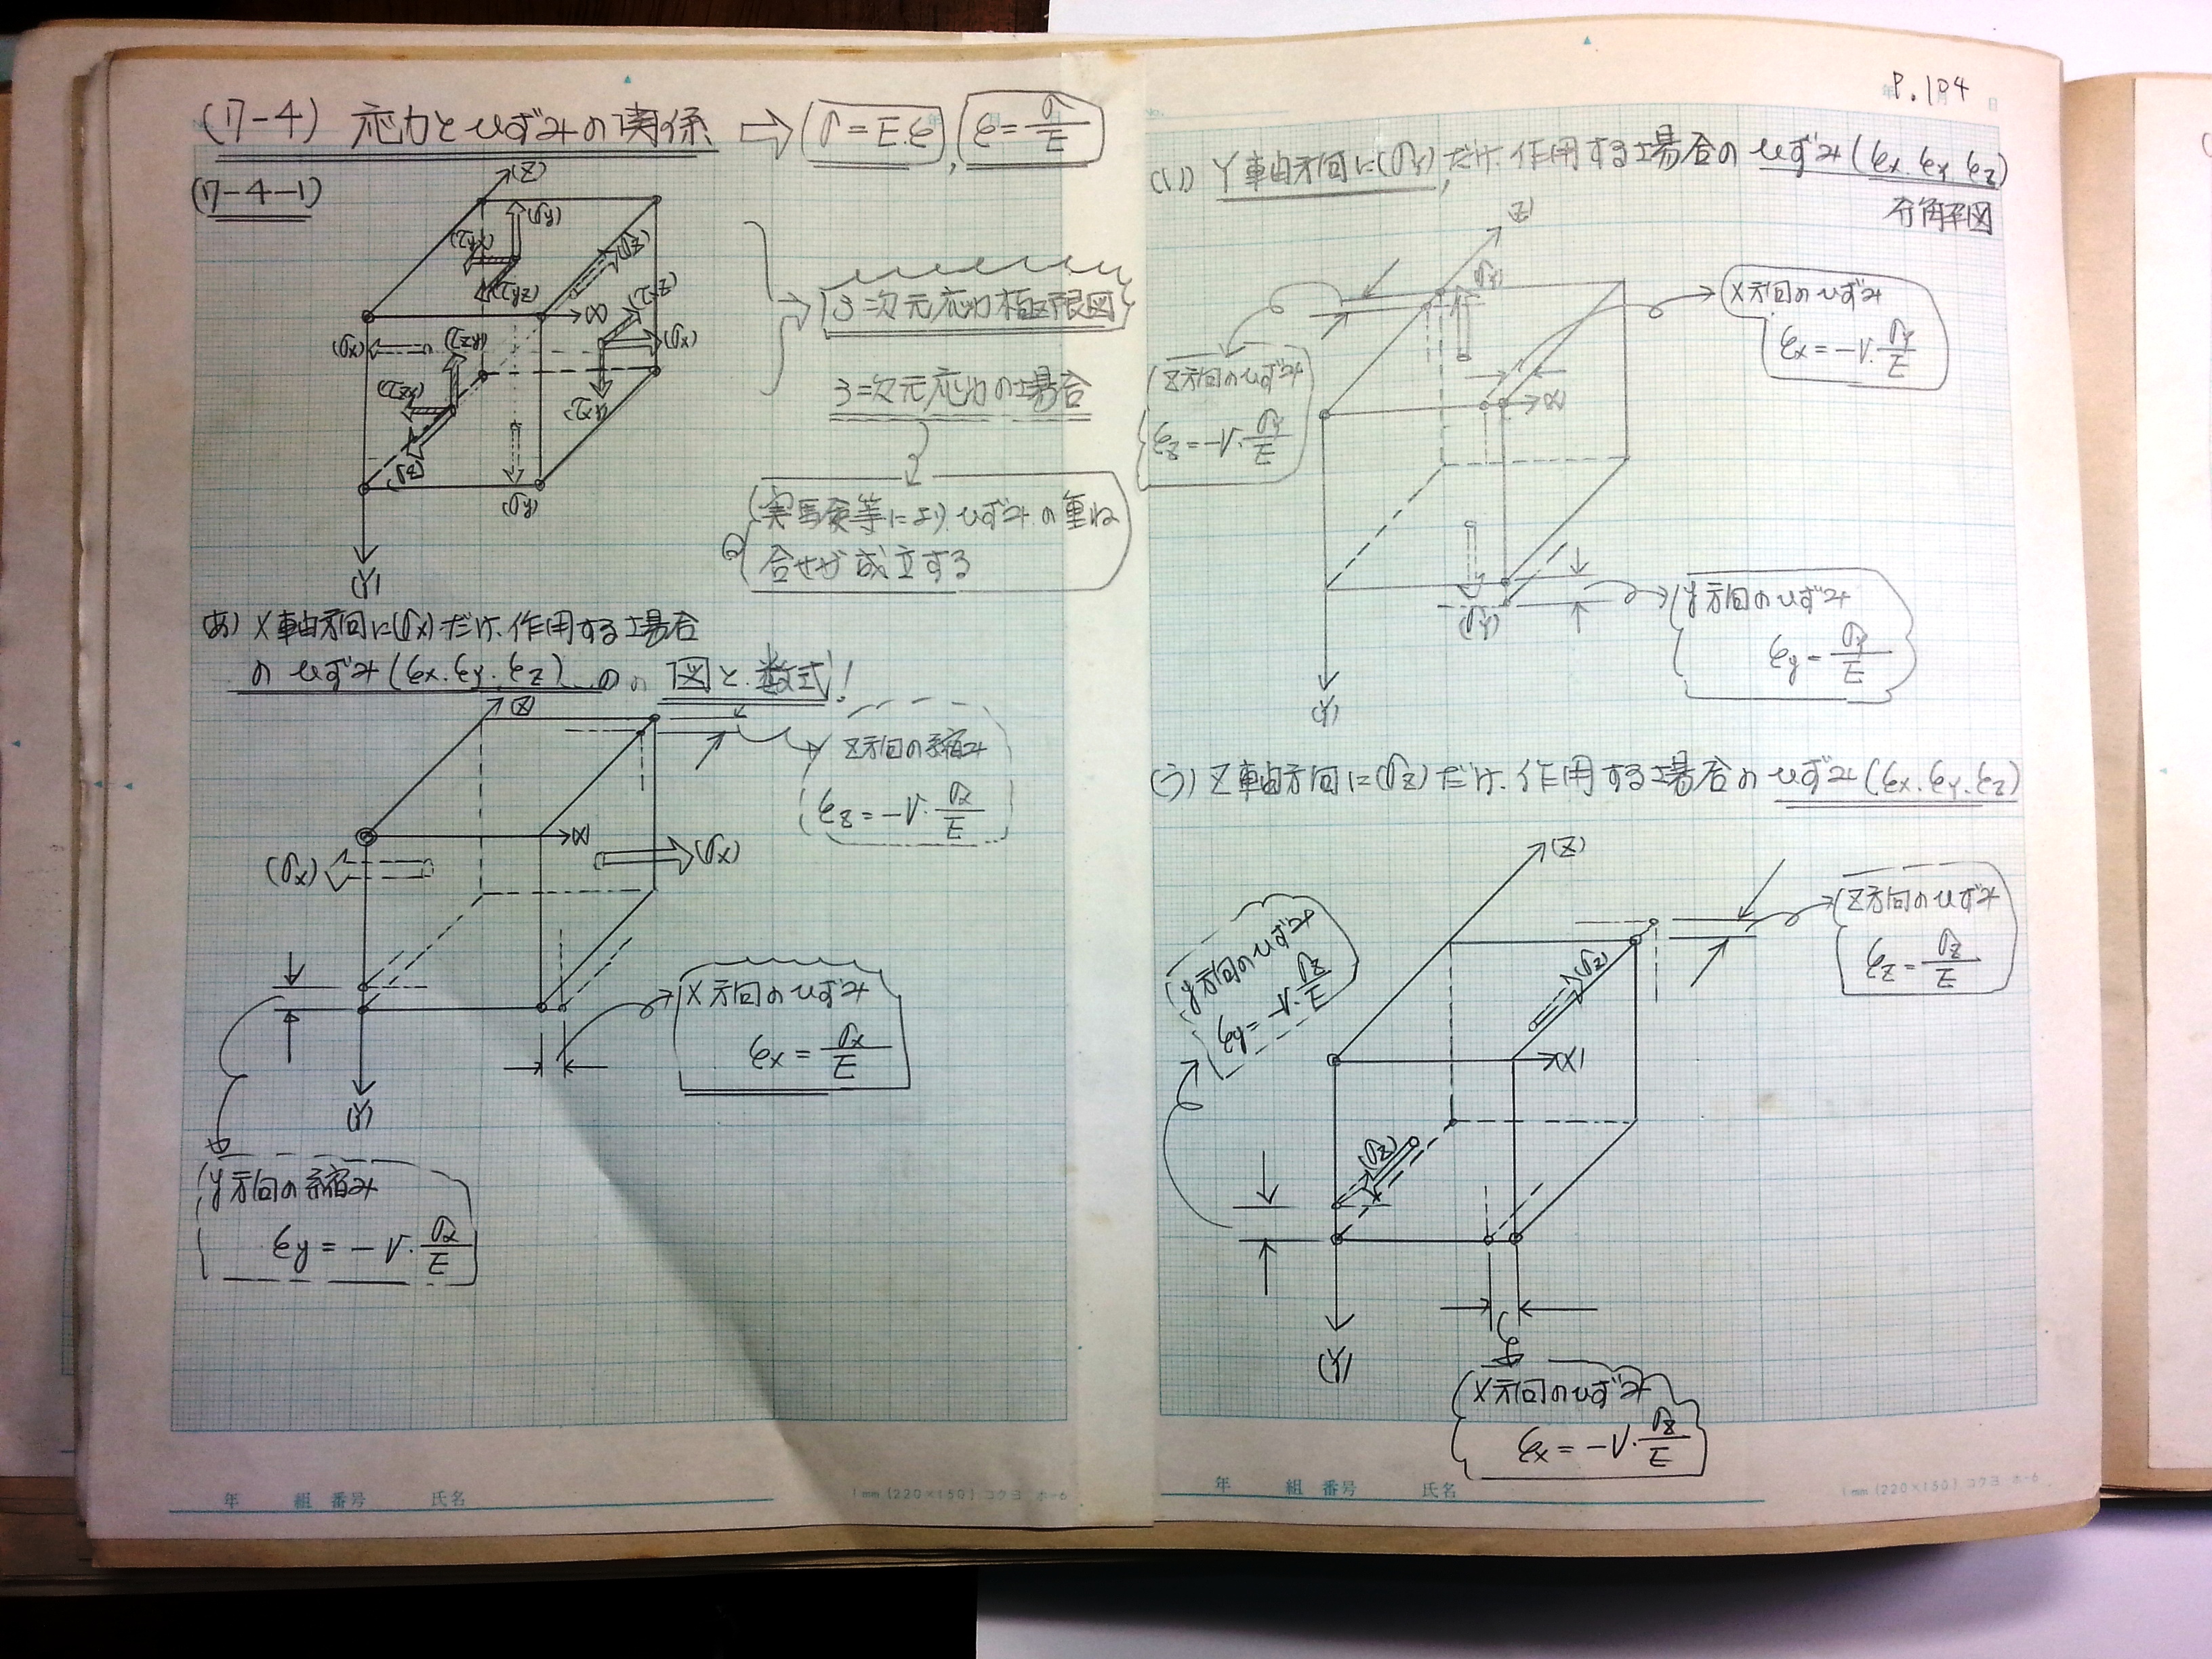 (7-4) 応力とひずみの関係 ⇒ σ=E.ε , ε=σ/E
(7-4-1)
(Z)
(σy)
(τyx)
(σz)
(τyz)
(τxz)
(X)
(σx)
(τzy)
(σx)
(τzx)
(τxy)
(σz)
(σy)
(Y)
3=次元応力極限図
3=次元応力の場合
実験等により、ひずみの重ね
合せが成立する
あ) X軸方向に(σx)だけ、作用する場合
のひずみ(εx.εy.εz)の 図と、数式!
(Z)
Z方向の縮み
εz=-ν・σx/E
(X)
(σx)
(σx)
X方向のひずみ
εx=σx/E
(Y)
y方向の縮み
εy=-ν・σx/E
年 組 番号 氏名
1mm (220×150) コクヨ ホ-6
P.104
(い) Y軸方向に(σy)だけ、作用する場合のひずみ(εx.εy.εz)
分解図
(Z)
(σy)
X方向のひずみ
εx=-ν・σy/E
Z方向のひずみ
εz=-ν・σy/E
(X)
(σy)
y方向のひずみ
εy=σy/E
(Y)
(う) Z軸方向に(σz)だけ、作用する場合のひずみ(εx.εy.εz)
(Z)
Z方向のひずみ
εz=σz/E
y方向のひずみ
εy=-ν・σz/E
(σz)
(X)
(σz)
(Y)
X方向のひずみ
εx=-ν・σz/E
年 組 番号 氏名
1mm (220×150) コクヨ ホ-6